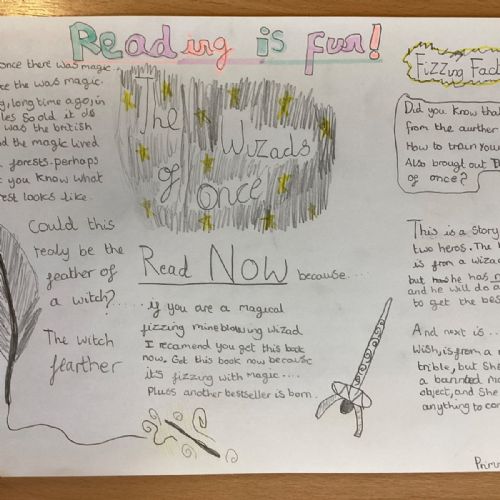 Reading is fun!
once there was magic
the was magic.
long time ago, in
les so old it do
was the british
nd the magic lived
forests. perhaps
you know what
rest looks like.
The
Wizads
of once
Could this
realy be the
feather of
a witch?
The witch
fearther
Read NOW because.....
if you are a magical
fizzing mineblowing wizad
I recamend you get this book
now. Get this book now because
it's fizzing with magic....
Pluss another bestseller is born.
Fizzing Fact
Did you know that
from the aurther
How to train your
Also brougt out
of once?
This is a story
two heros. The
is from a wizad
but he has
and he will do a
to get the bes
And next is ..
Wish, is from a
trible, but She
a bannded ma
object, and She
anything to co